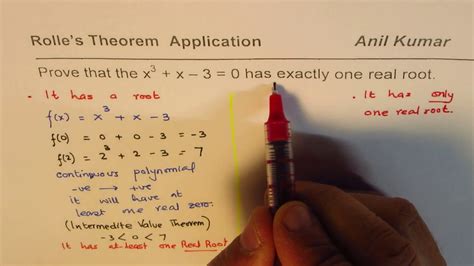 Rolle's Theorem Application
Anil Kumar
Prove that the x³ + x – 3 = 0 has exactly one real root.
· It has a root
f(x) = x³ + x – 3
f(0) = 0 + 0 – 3 = –3
f(2) = 2³ + 2 – 3 = 7
continuous polynomial
–ve → +ve
it will have at
least one real zero.
(Intermedite Value Theorem)
–3 < 0 < 7
It has at-least one Real Root
· It has only
one real root.